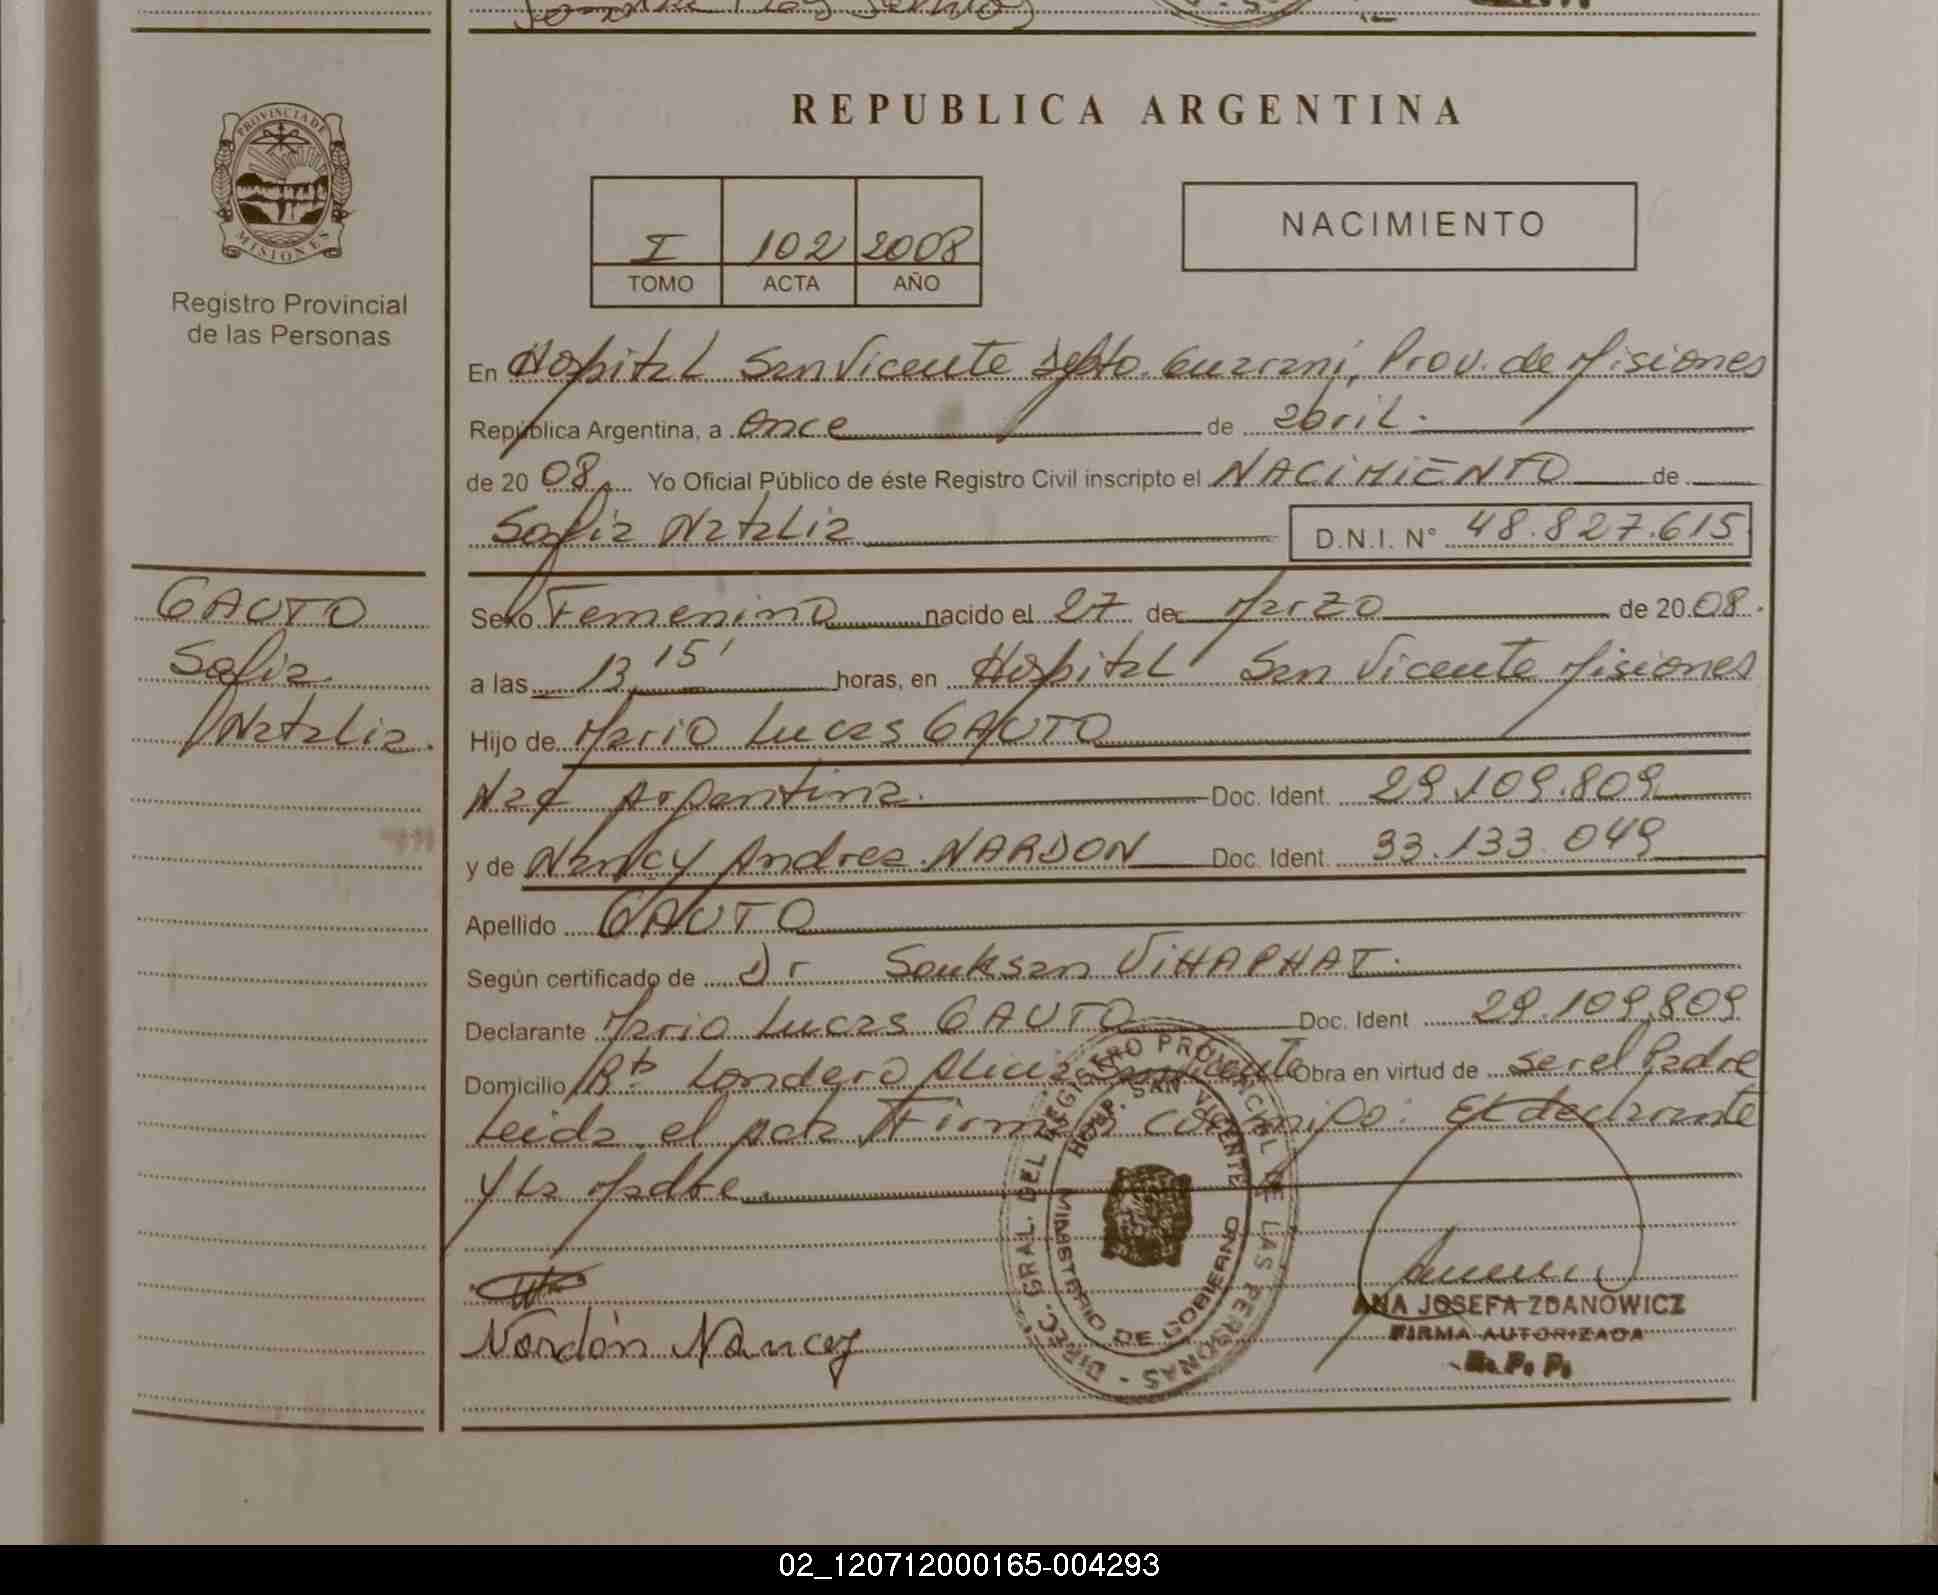 REPUBLICA ARGENTINA
PROVINCIA DE
MISIONES
Registro Provincial
de las Personas
I 102 2008
TOMO ACTA AÑO
NACIMIENTO
En Hospital San Vicente Depto. Guarani, Prov. de Misiones
República Argentina, a once de abril.
de 20 08. Yo Oficial Público de éste Registro Civil inscripto el NACIMIENTO de
Sofia Natalia D.N.I. Nº 48.827.615
GAUTO
Sofia
Natalia.
Sexo Femenino nacido el 27 de Marzo de 20 08.
a las 13,15' horas, en Hospital San Vicente Misiones
Hijo de Mario Lucas GAUTO
Nac Argentina. Doc. Ident. 29.109.809
y de Nancy Andrea NARDON Doc. Ident. 33.133.049
Apellido GAUTO
Según certificado de Dr Souksan VIHAPHAT.
Declarante Mario Lucas GAUTO Doc. Ident 29.109.809
Domicilio Bº Londero Alicia San Vicente Obra en virtud de ser el Padre
Leida el acta Firman conmigo: El declarante
y la Madre.
DIREC. GRAL. DEL REGISTRO PROVINCIAL DE LAS PERSONAS -
HOSP. SAN VICENTE
MINISTERIO DE GOBIERNO
Nardón Nancy
ANA JOSEFA ZDANOWICZ
FIRMA AUTORIZADA
R. P. P.
02_120712000165-004293